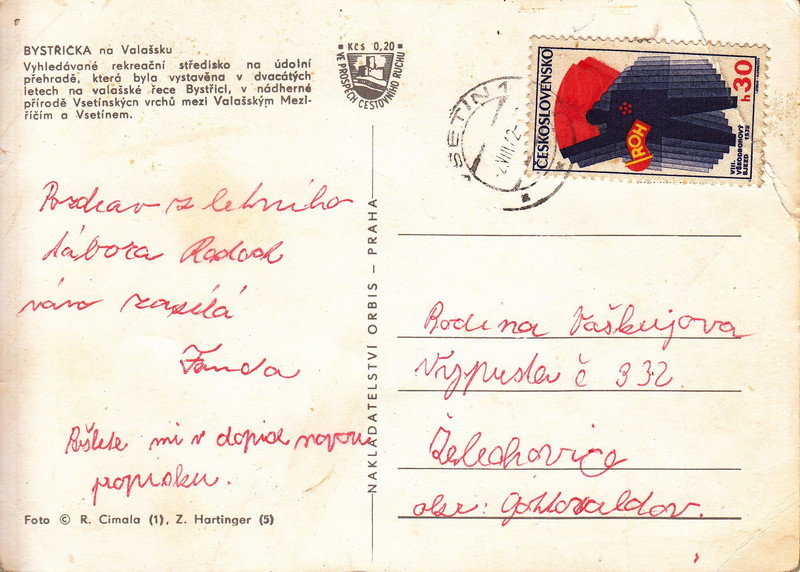 BYSTŘIČKA na Valašsku
Vyhledávané rekreační středisko na údolní
přehradě, která byla vystavěna v dvacátých
letech na valašské řece Bystřici, v nádherné
přírodě Vsetínských vrchů mezi Valašským Mezi-
říčím a Vsetínem.
Kčs 0,20
VE PROSPĚCH CESTOVNÍHO RUCHU
VSETÍN 1
VIII.72
ČESKOSLOVENSKO
30
h
ROH
VIII.
VŠEODBOROVÝ
SJEZD
1972
Pozdrav z letního
tábora
vám zasílá
Fanda
Pošlete mi v dopise novou
propisku.
NAKLADATELSTVÍ ORBIS – PRAHA
Rodina Vaškujova
Vypusta č 332.
Želechovice
okr: Gottwaldov.
Foto © R. Cimala (1), Z. Hartinger (5)